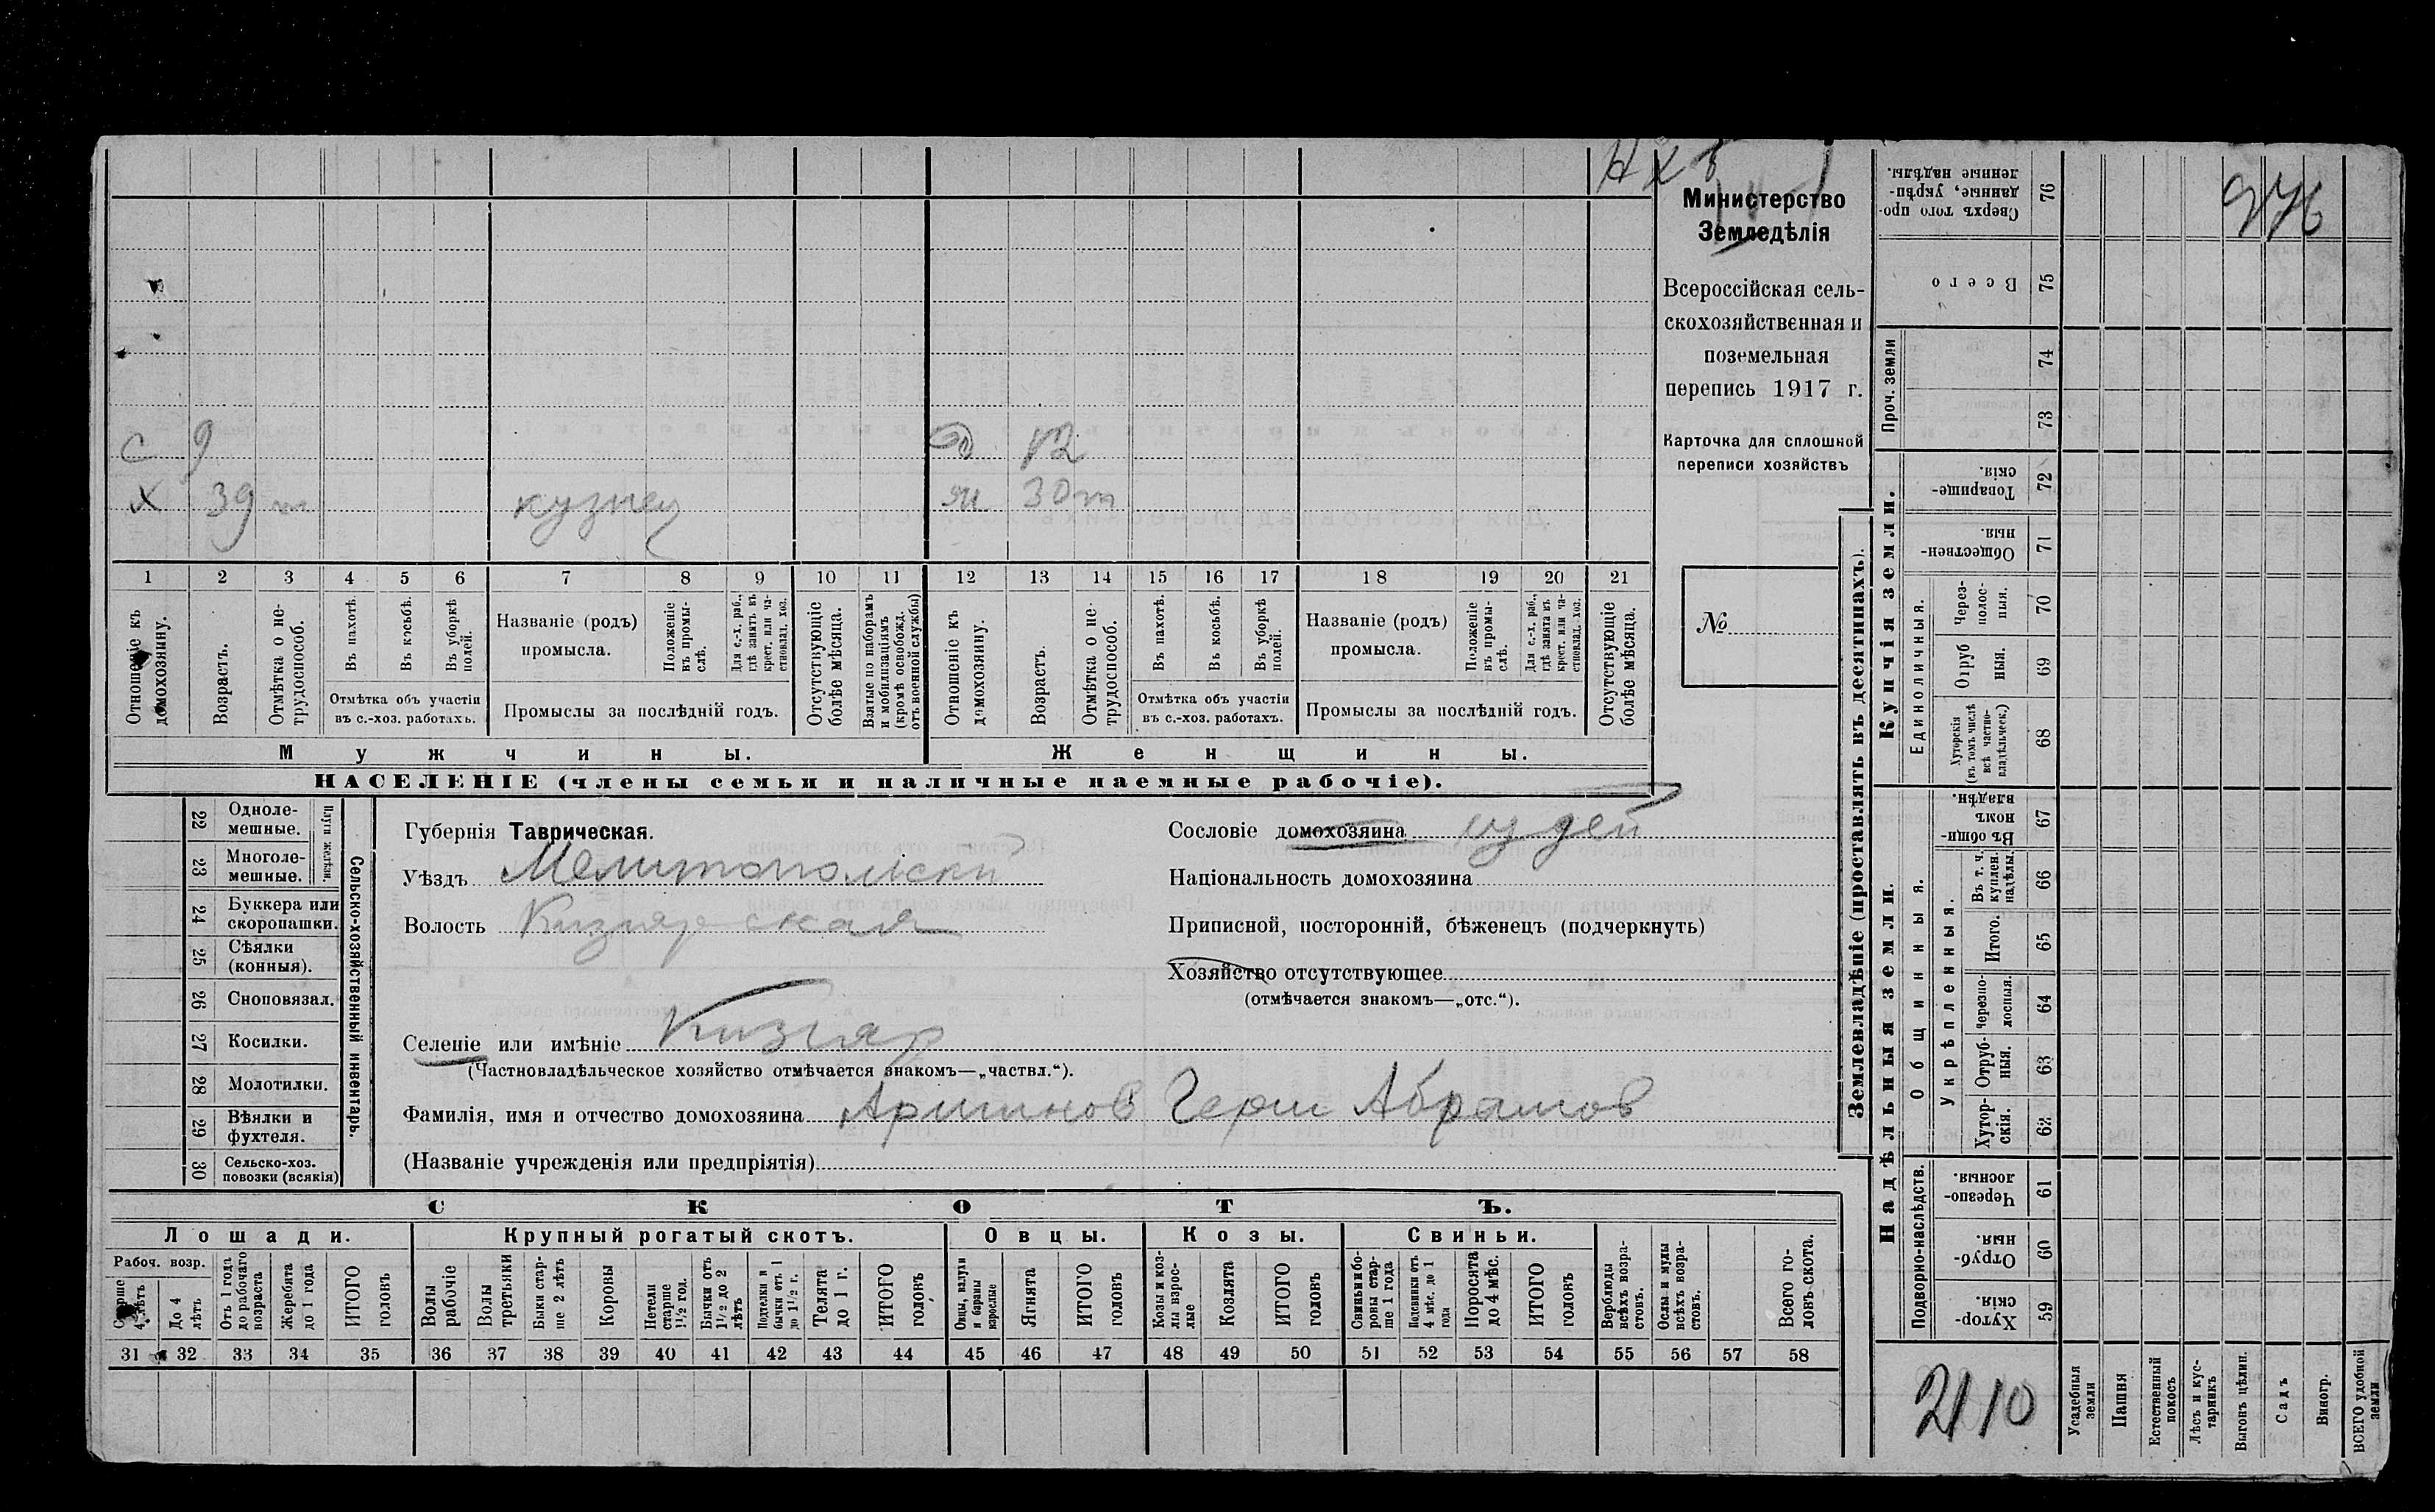 Министерство
Земледѣлія
Всероссійская сель-
скохозяйственная и
поземельная
перепись 1917 г.
Карточка для сплошной
переписи хозяйствъ
№
976
с 9 12
х 39 кузнец 30
1 2 3 4 5 6 7 8 9 10 11 12 13 14 15 16 17 18 19 20 21
Отношеніе къ домохозяину.
Возрастъ.
Отмѣтка о не-трудоспособ.
Въ пахотѣ.
Въ косьбѣ.
Въ уборкѣ полей.
Отмѣтка объ участіи
въ с.-хоз. работахъ.
Названіе (родъ)
промысла.
Положеніе въ промы-слѣ.
Для с.-х. раб., гдѣ занятъ въ крест. или ча-стновлад. хоз.
Промыслы за послѣдній годъ.
Отсутствующіе болѣе мѣсяца.
Взятые по наборамъ и мобилизаціямъ (кромѣ освобожд. отъ военной службы)
Отношеніе къ домохозяину.
Возрастъ.
Отмѣтка о не-трудоспособ.
Въ пахотѣ.
Въ косьбѣ.
Въ уборкѣ полей.
Отмѣтка объ участіи
въ с.-хоз. работахъ.
Названіе (родъ)
промысла.
Положеніе въ промы-слѣ.
Для с.-х. раб., гдѣ занята въ крест. или ча-стновлад. хоз.
Промыслы за послѣдній годъ.
Отсутствующіе болѣе мѣсяца.
Мужчины. Женщины.
НАСЕЛЕНІЕ (члены семьи и наличные наемные рабочіе).
22 Одноле-мешные.
23 Многоле-мешные.
Плуги желѣзн.
24 Буккера или скоропашки.
25 Сѣялки (конныя).
26 Сноповязал.
27 Косилки.
28 Молотилки.
29 Вѣялки и фухтеля.
30 Сельско-хоз. повозки (всякія)
Сельско-хозяйственный инвентарь.
Губернія Таврическая.
Уѣздъ Мелитопольскій
Волость Кизиярская
Селеніе или имѣніе Кизияр
(Частновладѣльческое хозяйство отмѣчается знакомъ—„частвл.“).
Фамилія, имя и отчество домохозяина Аршинов Герш Абрамов
(Названіе учрежденія или предпріятія)
Сословіе домохозяина иудей
Національность домохозяина
Приписной, посторонній, бѣженецъ (подчеркнуть)
Хозяйство отсутствующее
(отмѣчается знакомъ—„отс.“).
СКОТЪ.
Лошади. Крупный рогатый скотъ. Овцы. Козы. Свиньи.
Рабоч. возр.
Старше 4 лѣтъ
До 4 лѣтъ
Отъ 1 года до рабочаго возраста
Жеребята до 1 года
ИТОГО головъ
Волы рабочіе
Волы третьяки
Быки стар-ше 2 лѣтъ
Коровы
Нетели старше 1½ год.
Бычки отъ 1½ до 2 лѣтъ
Подтелки и бычки отъ 1 до 1½ г.
Телята до 1 г.
ИТОГО головъ
Овцы, валухи и бараны взрослые
Ягнята
ИТОГО головъ
Козы и коз-лы взрос-лые
Козлята
ИТОГО головъ
Свиньи бо-ровы стар-ше 1 года
Подсвинки отъ 4 мѣс. до 1 года
Поросята до 4 мѣс.
ИТОГО головъ
Верблюды всѣхъ возра-стовъ.
Ослы и мулы всѣхъ возра-стовъ.
Всего го-ловъ скота.
31 32 33 34 35 36 37 38 39 40 41 42 43 44 45 46 47 48 49 50 51 52 53 54 55 56 57 58
Землевладѣніе (проставлять въ десятинахъ).
Купчія земли.
Надѣльныя земли.
Сверхъ того про-данные, укрѣп-ленные надѣлы. 76
Всего 75
Проч. земли 74 73
Товарище-скія. 72
Обществен-ныя. 71
Единоличныя.
Через-полос-ныя. 70
Отруб ныя. 69
Хуторскія (въ томъ числѣ всѣ частно-владѣльческ.) 68
Общинныя.
Въ общи-номъ владѣн. 67
Укрѣпленныя.
Въ т. ч. куплен. надѣлы. 66
Итого. 65
Черезпо-лосныя. 64
Отруб-ныя. 63
Хутор-скія. 62
Подворно-наслѣдств.
Черезпо-лосныя. 61
Отруб-ныя. 60
Хутор-скія. 59
2110
Усадебныя земли
Пашня
Естественный покосъ
Лѣсъ и кус-тарникъ
Выгонъ цѣлин.
Садъ
Виногр.
ВСЕГО удобной земли